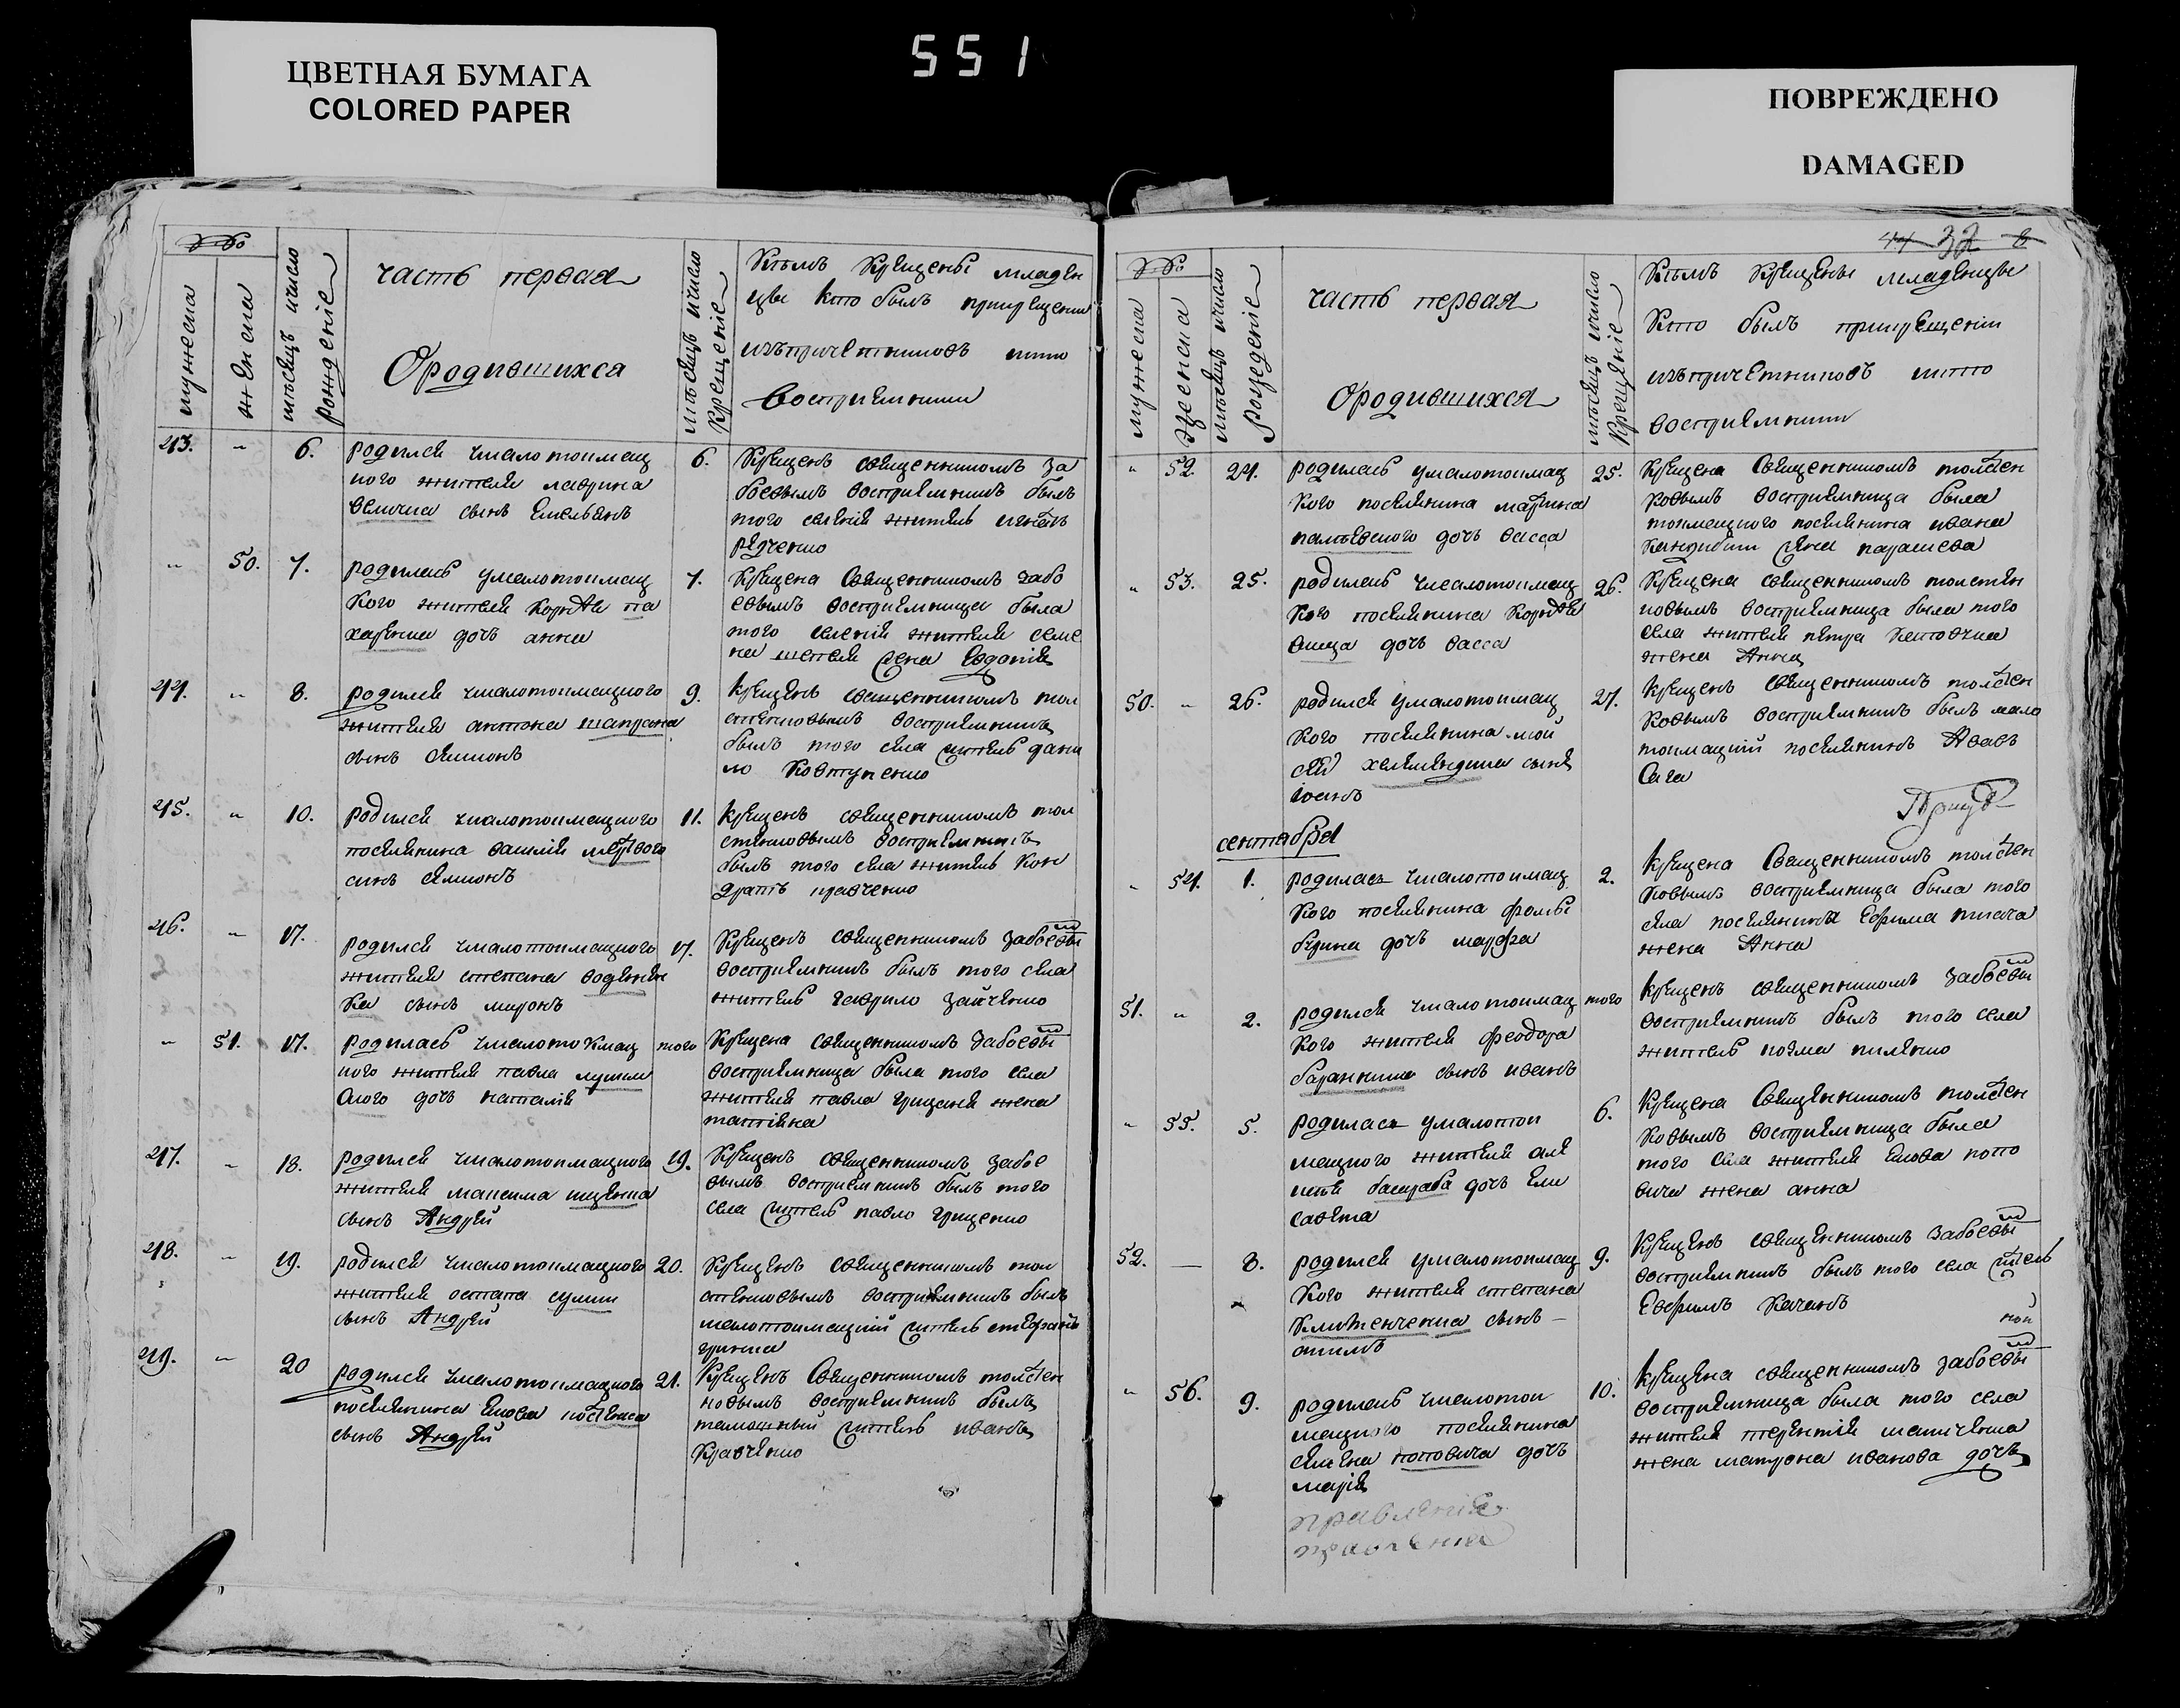 551
ЦВЕТНАЯ БУМАГА
COLORED PAPER
ПОВРЕЖДЕНО
DAMAGED
мужеска
женска
мѣсяцъ ичисло
рожденіе
часть первая
Ородившихся
мѣсяцъ ичисло
крещеніе
Кѣмъ Крещены младен
цы кто былъ прикрещении
изъпричетниковъ икто
Воспріемники
43. 6.
родился умалотокмац
кого жителя лаврина
величка сынъ Емельянъ
6.
Крещенъ священникомъ За
боевымъ воспріемникъ былъ
того селенія житель
50. 7.
родилась умалотокмац
кого жителя Корнѣя па
харенка дочъ анна
7.
Крещена Священникомъ забо
евымъ воспріемница была
того селенія жителя семе
на жена Евдокія
44. 8.
родился умалотокмацкого
жителя антона шапрана
сынъ Симионъ
9.
Крещенъ священникомъ тол
стенковымъ воспріемникъ
былъ того села житель дани
ло Ковтуненко
45. 10.
родился умалотокмацкого
поселянина василія
синъ Симионъ
11.
Крещенъ священникомъ тол
стенковымъ воспріемникъ
былъ того села житель Кон
дратъ кравченко
46. 17.
родился умалотокмацкого
жителя степана воденни
ка сынъ миронъ
17.
Крещенъ священникомъ Забоевы
воспріемникъ былъ того села
житель гаврило зайченко
51. 17.
родилась умалотокмац
кого жителя павла
дочъ наталія
того
Крещена священникомъ Забоевы
воспріемница была того села
жителя павла грицаня жена
татіяна
47. 18.
родился умалотокмацкого
жителя максима ищенка
сынъ Андрей
19.
Крещенъ священникомъ Забое
вымъ воспріемникъ былъ того
села житель павло грищенко
48. 19.
родился умалотокмацкого
жителя остапа сулими
сынъ Андрей
20.
Крещенъ священникомъ тол
стенковымъ воспріемникъ былъ
малотокмацкій житель
49. 20
родился умалотокмацкого
поселянина Якова костенка
сынъ Андрей
21.
Крещенъ Священникомъ толстен
ковымъ воспріемникъ былъ
тамошный житель иванъ
Кравченко
44 32 8
мужеска
женска
мѣсяцъ ичисло
рожденіе
часть первая
Ородившихся
мѣсяцъ ичисло
крещеніе
Кѣмъ Крещены младенцы
Кто былъ прикрещеніи
изъпричетниковъ икто
воспріемники
52. 24.
родилась умалотокмац
кого поселянина
дочъ васса
25.
Крещена Священникомъ толстен
ковымъ воспріемница была
токмацкого поселянина ивана
жена
53. 25.
родилась умалотокмац
кого поселянина Корнѣя
дочъ васса
26.
Крещена священникомъ толстен
ковымъ воспріемница была того
села жителя петра
жена Анна
50. 26.
родился умалотокмац
кого поселянина мой
сея сынъ
іоанъ
27.
Крещенъ священникомъ толстен
ковымъ воспріемникъ былъ мало
токмацкій поселянинъ
сентября
54. 1.
родилась умалотокмац
кого поселянина фомы
дочъ марфа
2.
Крещена Священникомъ толстен
ковымъ воспріемница была того
села поселянина Ефима ткача
жена Анна
51. 2.
родился умалотокмац
кого жителя феодора
баранника сынъ иванъ
того
Крещенъ священникомъ Забоевы
воспріемникъ былъ того села
житель
55. 5.
родилась умалоток
мацкого жителя але
ксѣя дочъ Ели
савета
6.
Крещена Священникомъ толстен
ковымъ воспріемница была
того села жителя Якова попо
вича жена анна
52. 8.
родился умалотокмац
кого жителя степана
Клименченка сынъ
акимъ
9.
Крещенъ священникомъ Забоевы
воспріемникъ былъ того села житель
Ефимъ Качанъ
56. 9.
родилась умалоток
мацкого поселянина
поповича дочъ
марія
10.
Крещена священникомъ Забоевы
воспріемница была того села
жителя терентія
жена матрона иванова дочъ